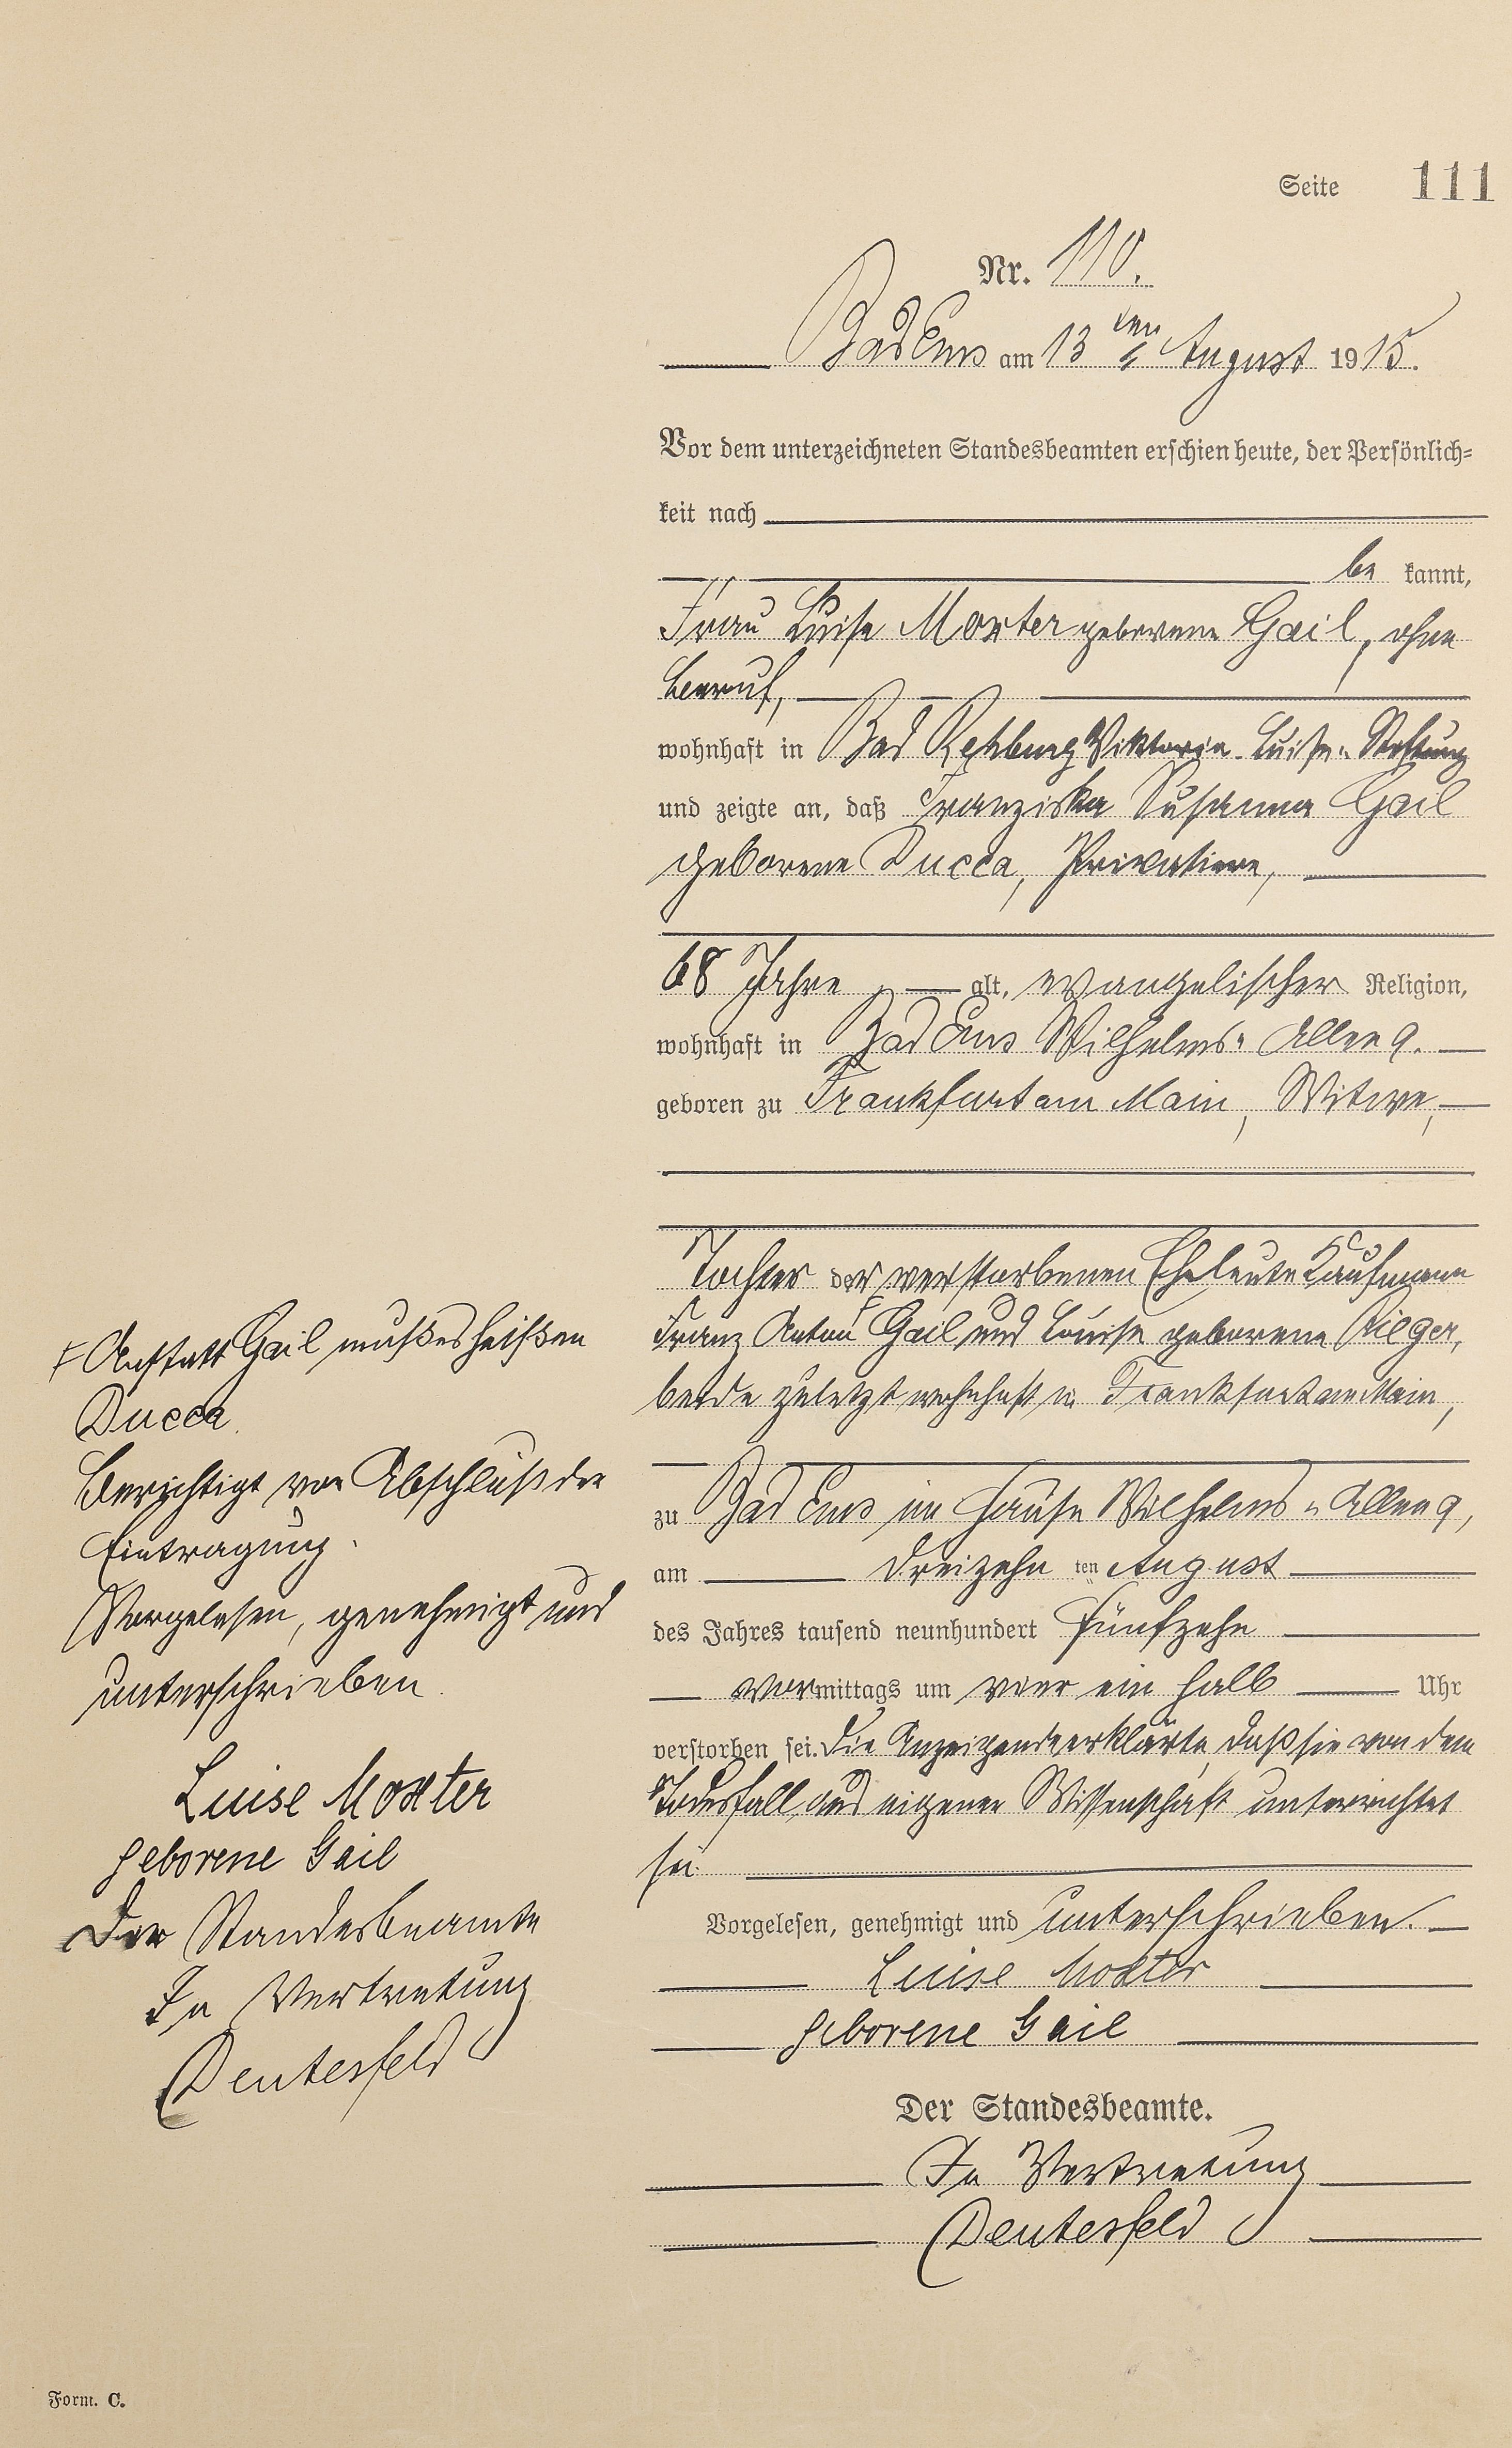 Seite 111
Nr. 110.
Bad Ems am 13 ten August 1915.
Vor dem unterzeichneten Standesbeamten erschien heute, der Persönlich-
keit nach
be kannt,
Frau Luise Moxter geborene Gail, ohne
Beruf,
wohnhaft in Bad Rehburg Viktoria-Luise-Stiftung
und zeigte an, daß Franziska Susanna Gail
geborene Ducca, Privatiere,
68 Jahre alt, evangelischer Religion,
wohnhaft in Bad Ems Wilhelms-Allee 9.
geboren zu Frankfurt am Main, Witwe,
Tochter der verstorbenen Eheleute Kaufmann
Franz Anton Gail und Louise geborene Rieger,
beide zuletzt wohnhaft in Frankfurt am Main,
zu Bad Ems im Hause Wilhelms-Allee 9,
am dreizehn ten August
des Jahres tausend neunhundert fünfzehn
vormittags um vier ein halb Uhr
verstorben sei. Die Anzeigende erklärte, daß sie von dem
Todesfall aus eigener Wissenschaft unterrichtet
sei.
Vorgelesen, genehmigt und unterschrieben.
Luise Moxter
geborene Gail
Der Standesbeamte.
In Vertretung
Deutesfeld
F Anstatt Gail muß es heißen
Ducca.
Berichtigt vor Abschluß der
Eintragung.
Vorgelesen, genehmigt und
unterschrieben.
Luise Moxter
geborene Gail
Der Standesbeamte
In Vertretung
Deutesfeld
Form. C.